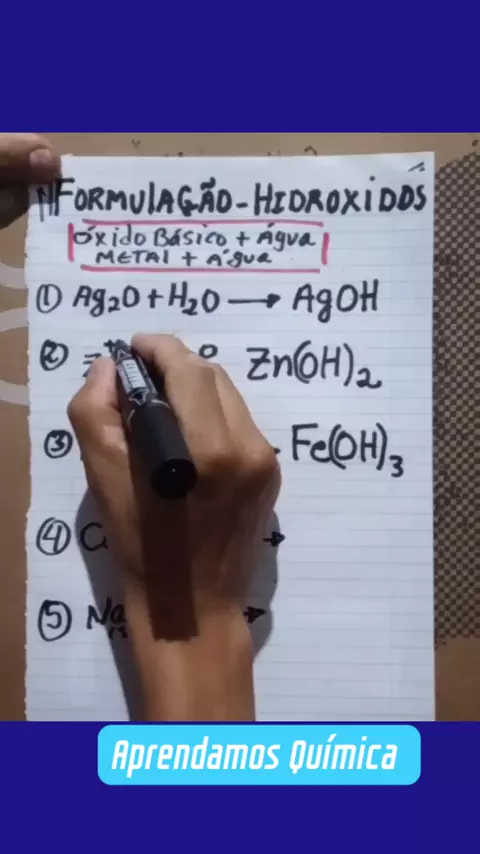 FORMULAÇÃO - HIDROXIDOS
ÓXIDO BÁSICO + ÁGUA
METAL + ÁGUA
① Ag₂O + H₂O → AgOH
② Zn(OH)₂
③ Fe(OH)₃
④ →
⑤ Na →
Aprendamos Química